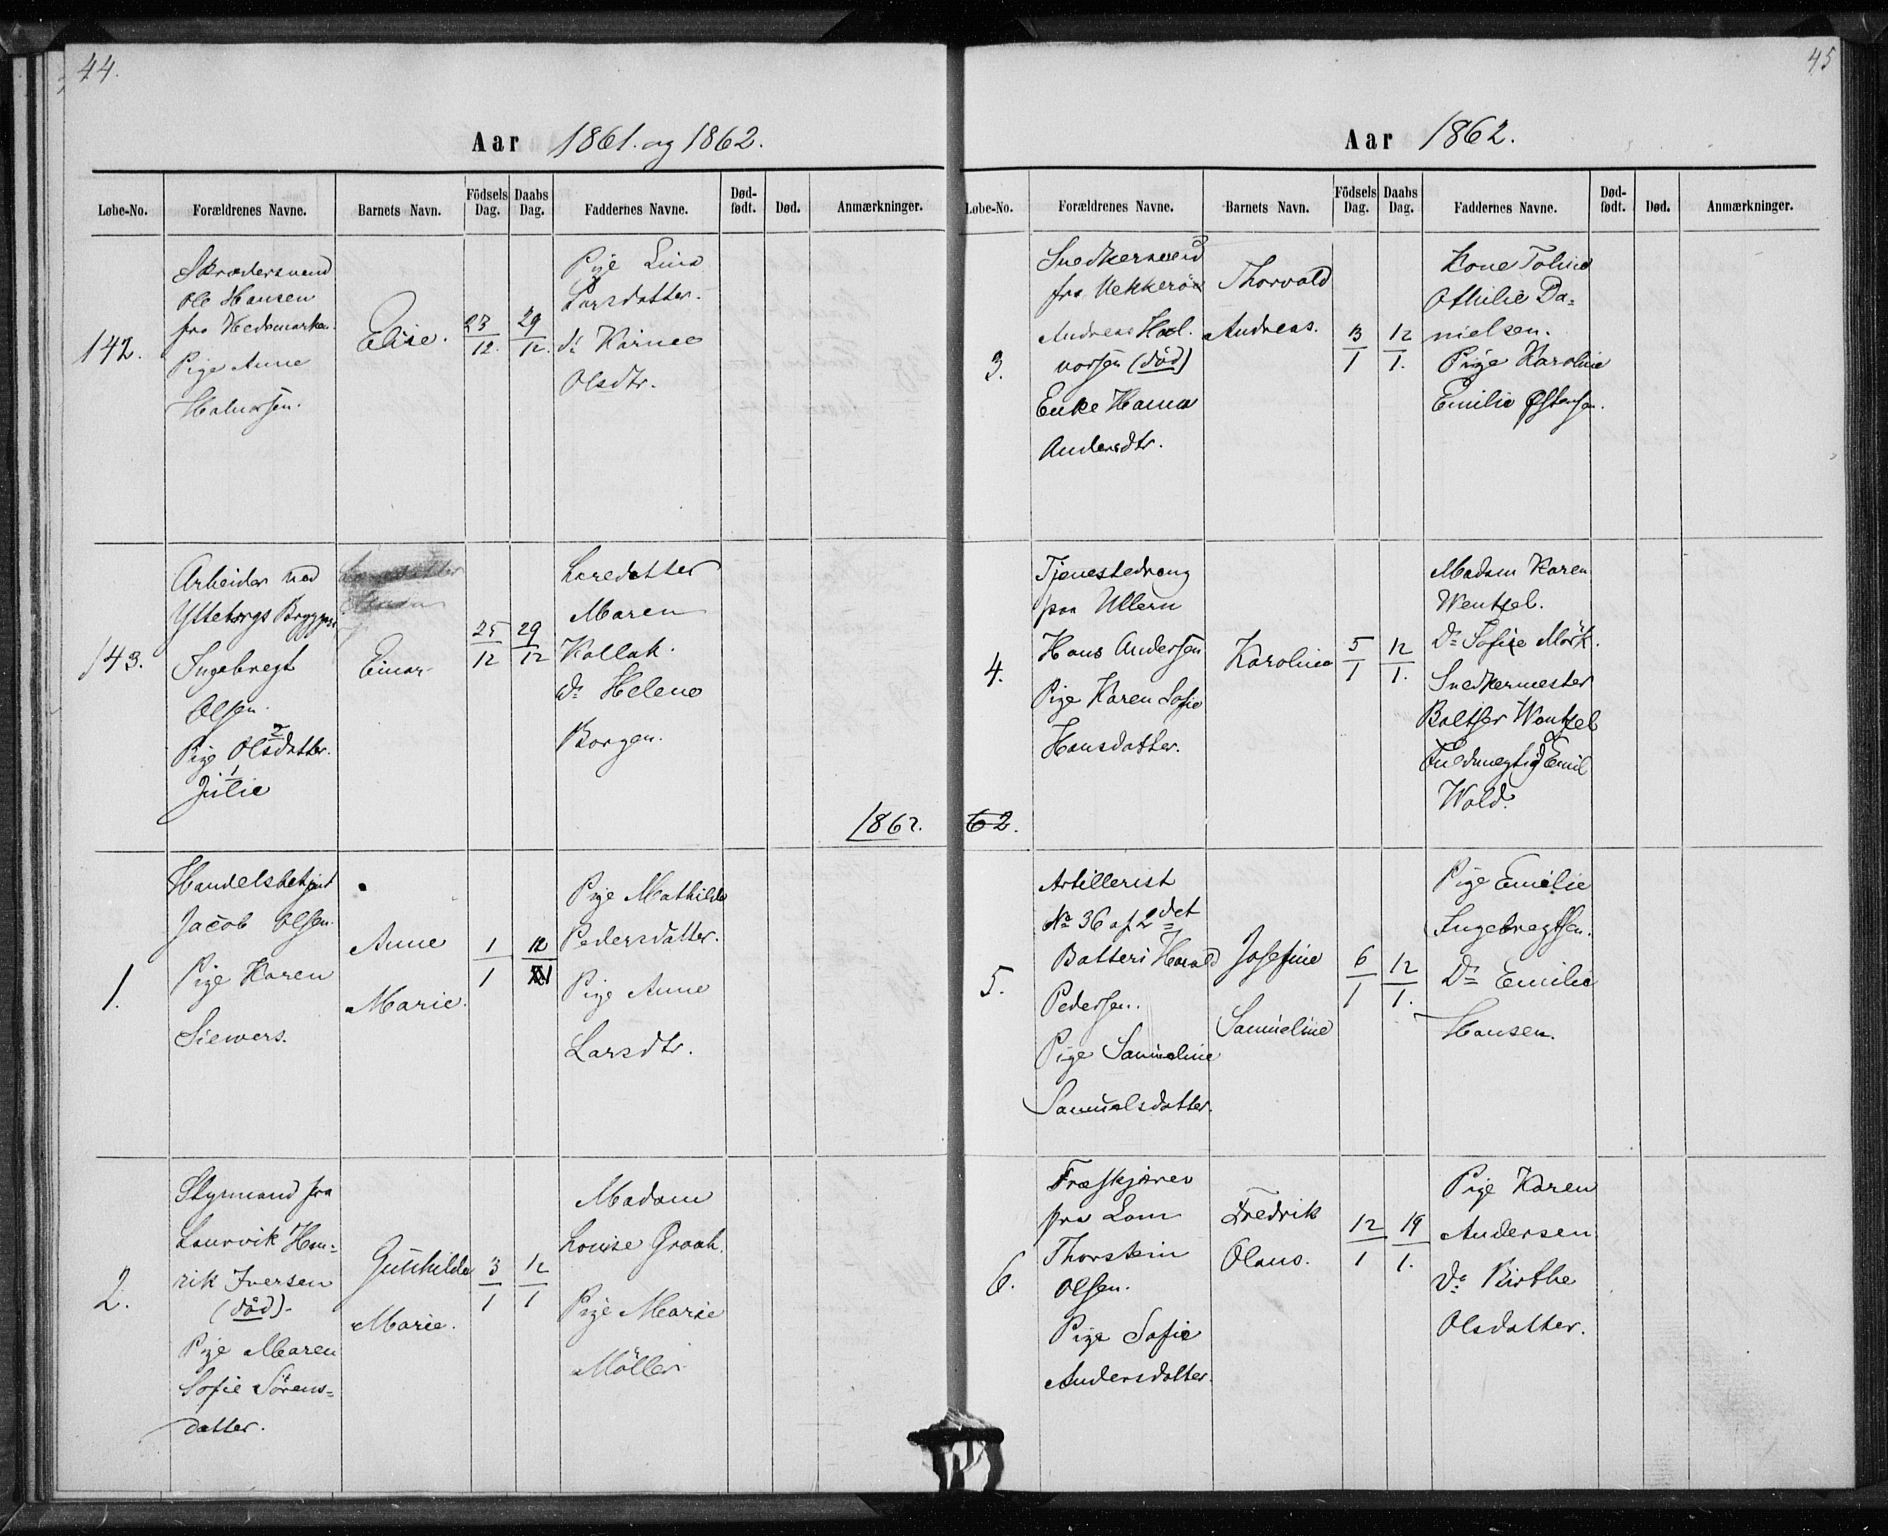 44.
Aar 1861. og 1862.
Løbe-No. Forældrenes Navne. Barnets Navn. Födsels Dag. Daabs Dag. Faddernes Navne. Død-født. Død. Anmærkninger.
142.
Skrædersvend
Ole Hansen
fra Hedemarken.
Pige Anne
Halvorsen.
Elise.
23/12.
29/12.
Pige Lina
Larsdatter.
do Karine
Olsdtr.
143.
Arbeider ved
Ytteborgs Bryggeri
Ingebregt
Olsen.
2
Pige Olsdatter.
1
Julie
Einar
25/12
29/12
Læredatter
Maren
Kollak.
do Helene
Borgen.
1862.
1.
Handelsbetjent
Jacob Olsen.
Pige Karen
Siewers.
Anne
Marie.
1/1
12/1
Pige Mathilde
Pedersdatter.
Pige Anne
Larsdtr.
2.
Styrmand fra
Laurvik Hen=
rik Iversen
(död).
Pige Maren
Sofie Sörens=
datter.
Gunhilde
Marie.
3/1
12/1
Madam
Louise Graah.
Pige Marie
Möller
45
Aar 1862.
Løbe-No. Forældrenes Navne. Barnets Navn. Födsels Dag. Daabs Dag. Faddernes Navne. Død-født. Død. Anmærkninger.
3.
Snedkersvend
fra Hekkeröen
Andreas Hal.
vorsen (död)
Enke Hanna
Andersdtr.
Thorvald
Andreas.
3/1
12/1.
Kone Toline
Othilie Da=
nielsen.
Pige Karoline
Emilie Østensen.
4.
Tjenestedreng
paa Ullern
Hans Andersen
Pige Karen Sofie
Hansdatter.
Karoline
5/1
12/1.
Madam Karen
Wentzel.
Do Sofie Mörk.
Snedkermester
Baltser Wentzel
Fuldmegtig Emil
Wold.
62.
5.
Artillerist
No 36 af 2det
Batteri Harald
Pedersen.
Pige Samueline
Samuelsdatter.
Josefine
Samueline
6/1
12/1.
Pige Emilie
Ingebregtsen.
Do Emilie
Hansen.
6.
Træskjærer
fra Lom
Thorstein
Olsen.
Pige Sofie
Andersdatter.
Fredrik
Olaus.
12/1
19/1.
Pige Karen
Andersen
do Birthe
Olsdatter.